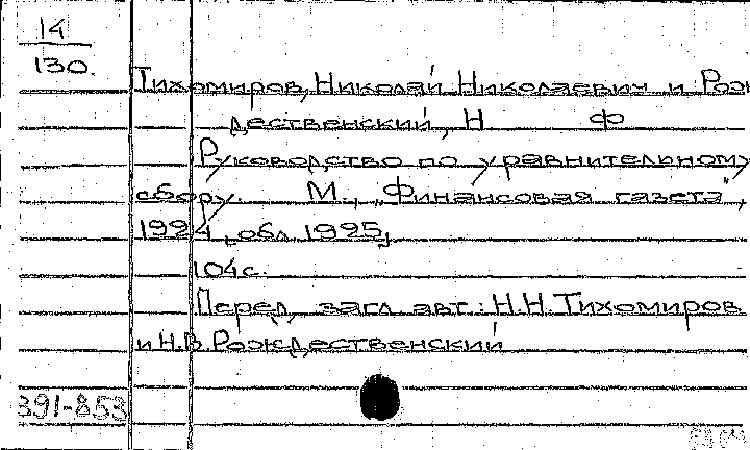 14
130.
Тихомиров, Николай Николаевич и Рож
дественский, Н Ф
Руководство по уравнительному
сбору. М., "Финансовая газета",
1924, [обл. 1925]
104 с.
Перед загл. авт.: Н.Н. Тихомиров
и Н.В. Рождественский
391-853